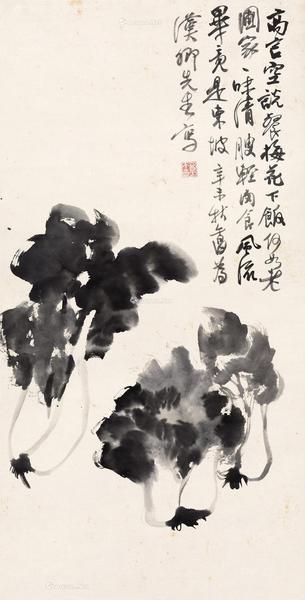 高言空說餐梅花下飯何如老
圃家一味清腴輕肉食風流
畢竟是東坡辛未秋為
漢卿先生寫